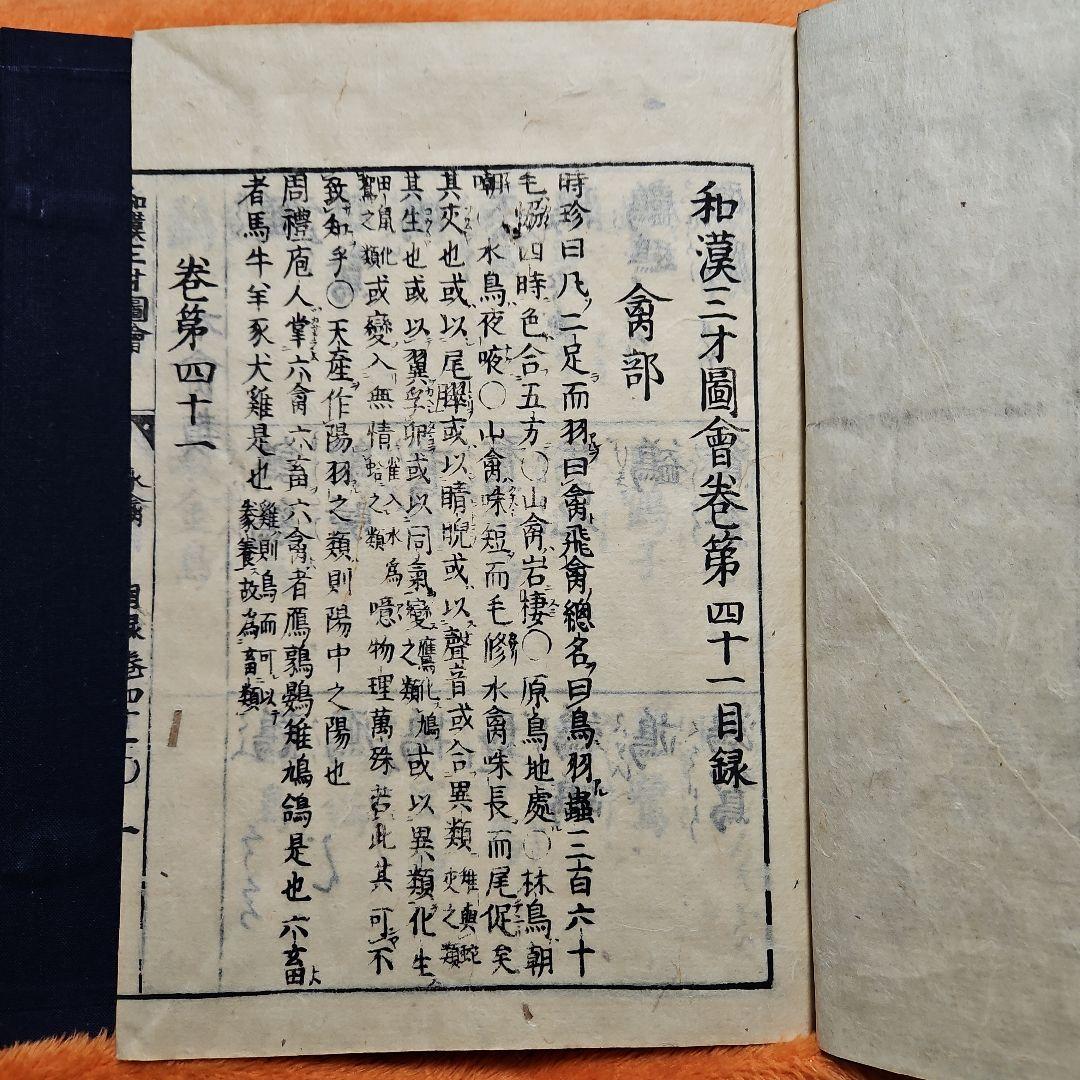 和漢三才圖會卷第四十一目録
禽部
時珍曰凡二足而羽曰禽飛禽總名曰鳥羽蟲三百六十
毛協四時色合五方〇山禽岩棲〇原鳥地處〇林鳥朝
嘲水鳥夜㖡〇山禽咮短而毛修水禽咮長而尾促矣
其交也或以尾臎或以睛睨或以聲音或合異類雉與蛇交之類
其生也或以翼孚卵或以同氣變之類鷹化鳩或以異類化生
田鼠化鴽之類或變入無情雀入水為蛤之類噫物理萬殊若此其可不
致知乎〇天産作陽羽之類則陽中之陽也
周禮庖人掌六禽六畜六禽者鴈鶉鷃雉鳩鴿是也六畜
者馬牛羊豕犬雞是也雞則鳥而可以豢養故為畜類
卷第四十一
和漢三才圖會
水禽 目録 卷四十一〇 一